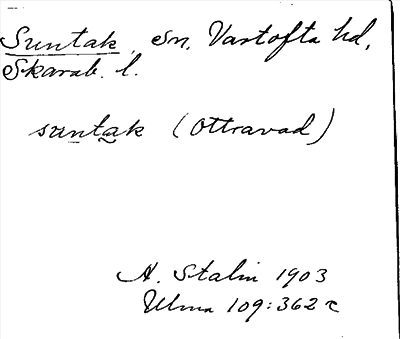 Suntak, Sn, Vartofta hd,
Skarab. l.
suntak (Ottravad)
A. Stalin 1903
Ulma 109:362 c